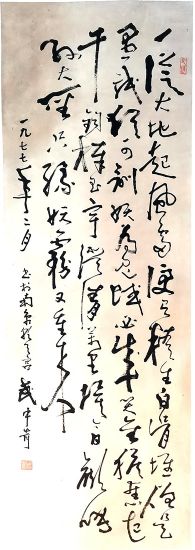 一从大地起风雷便有精生白骨堆僧是
愚氓犹可训妖为鬼蜮必成灾金猴奋起
千钧棒玉宇澄清万里埃今日欢呼
孙大圣只缘妖雾又重来
一九七七年十二月
武中奇